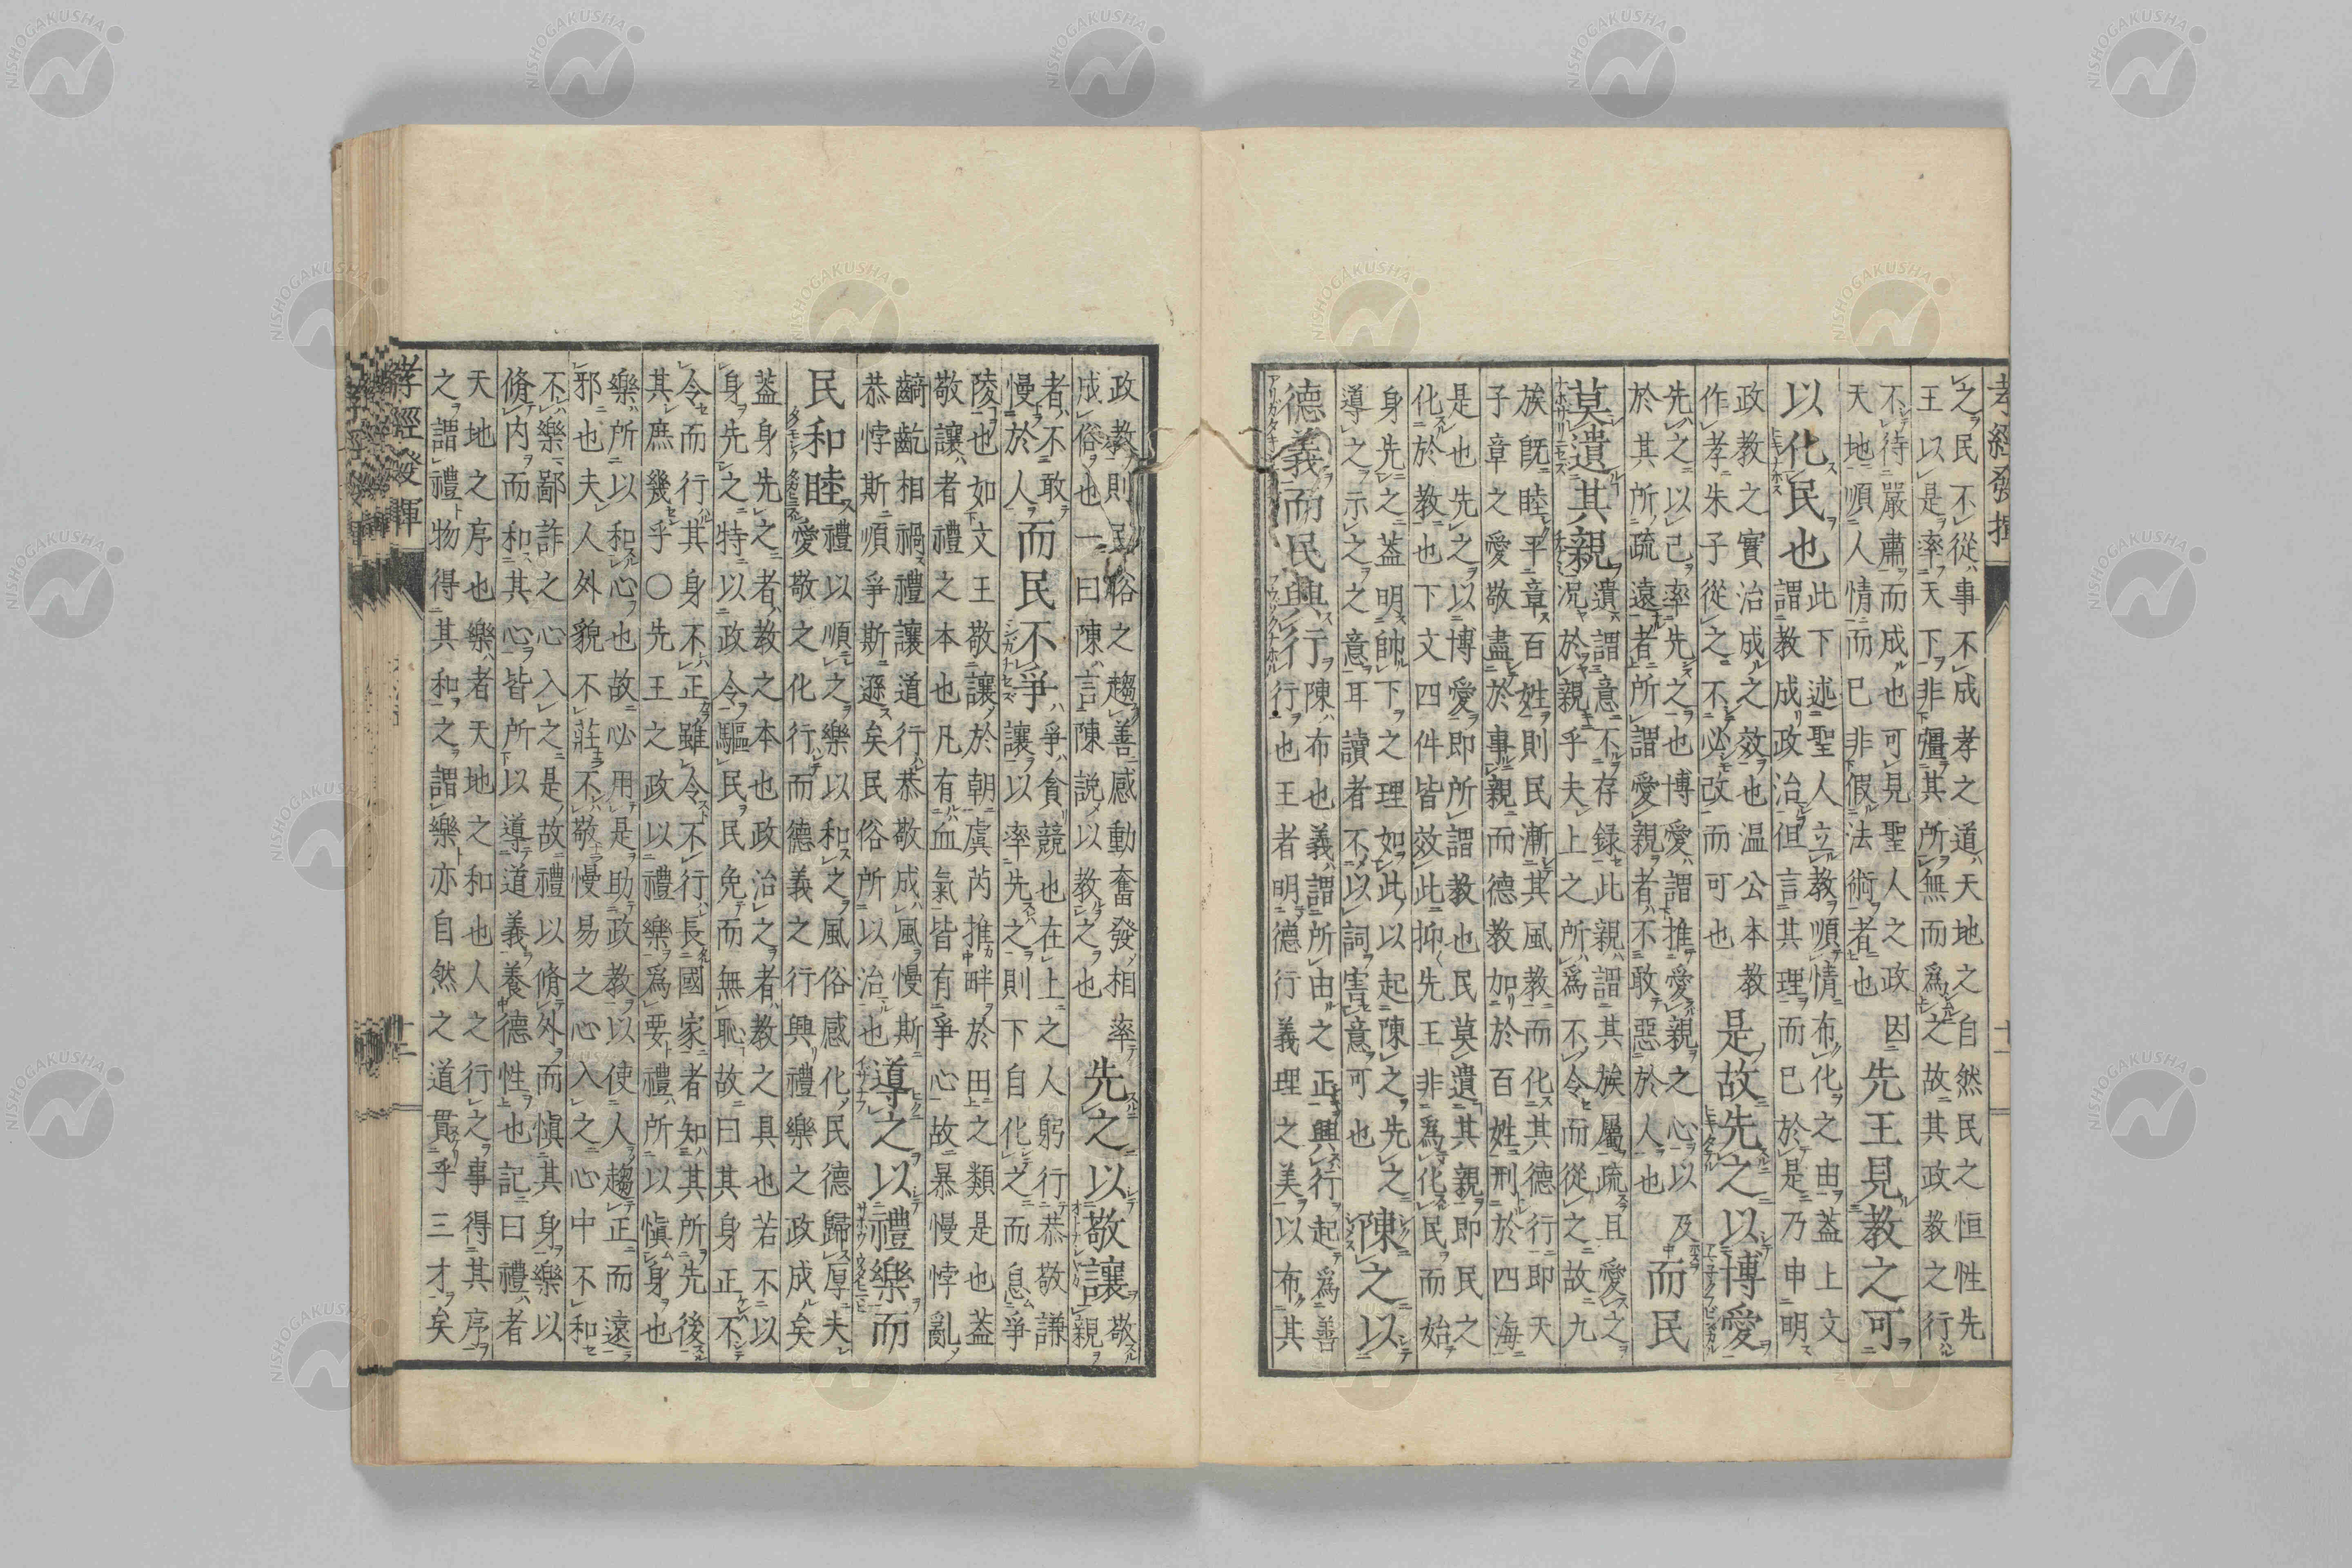 孝經發揮
十一
之民不從事不成孝之道天地之自然民之恒性先
王以是率天下非彊其所無而爲之故其政教之行
不待嚴肅而成也可見聖人之政因
天地順人情而已非假法術者也
先王見教之可
以化民也
此下述聖人立教順情布化之由蓋上文
謂教成政治但言其理而已於是乃申明
政教之實治成之效也温公本教
作孝朱子從之不必改而可也
是故先之以博愛
先之以己率先之也博愛謂推愛親之心以及
於其所疏遠者所謂愛親者不敢惡於人也
而民
莫遺其親
遺謂意不存録此親謂其族屬疏且愛之
况於親乎夫上之所爲不令而從之故九
族既睦平章百姓則民漸其風教而化其德行即天
子章之愛敬盡於事親而德教加於百姓刑於四海
是也先之以博愛即所謂教也民莫遺其親即民之
化於教也下文四件皆效此抑先王非爲化民而始
身先之蓋明帥下之理如此以起陳之先之
導之示之之意耳讀者不以詞害意可也
陳之以
德義而民興行
陳布也義謂所由之正興行起爲善
行也王者明德行義理之美以布其
政教則民俗之趨善感動奮發相率
成俗也一曰陳言陳說以教之也
先之以敬讓
敬
親
者不敢
慢於人
而民不爭
爭貪競也在上之人躬行恭敬謙
讓以率先之則下自化之而息爭
陵也如文王敬讓於朝虞芮推畔於田之類是也蓋
敬讓者禮之本也凡有血氣皆有爭心故暴慢悖亂
齮齕相禍禮讓道行恭敬成風慢斯
恭悖斯順爭斯遜矣民俗所以治也
導之以禮樂而
民和睦
禮以順之樂以和之風俗感化民德歸厚夫
愛敬之化行而德義之行興禮樂之政成矣
蓋身先之者教之本也政治之者教之具也若不以
身先之特以政令驅民民免而無恥故曰其身正不
令而行其身不正雖令不行長國家者知其所先後
其庶幾乎〇先王之政以禮樂爲要禮所以愼身也
樂所以和心也故必用是助政教以使人趨正而遠
邪也夫人外貌不莊不敬慢易之心入之心中不和
不樂鄙詐之心入之是故禮以脩外而愼其身樂以
脩内而和其心皆所以導道義養德性也記曰禮者
天地之序也樂者天地之和也人之行之事得其序
之謂禮物得其和之謂樂亦自然之道貫乎三才矣
孝經發揮